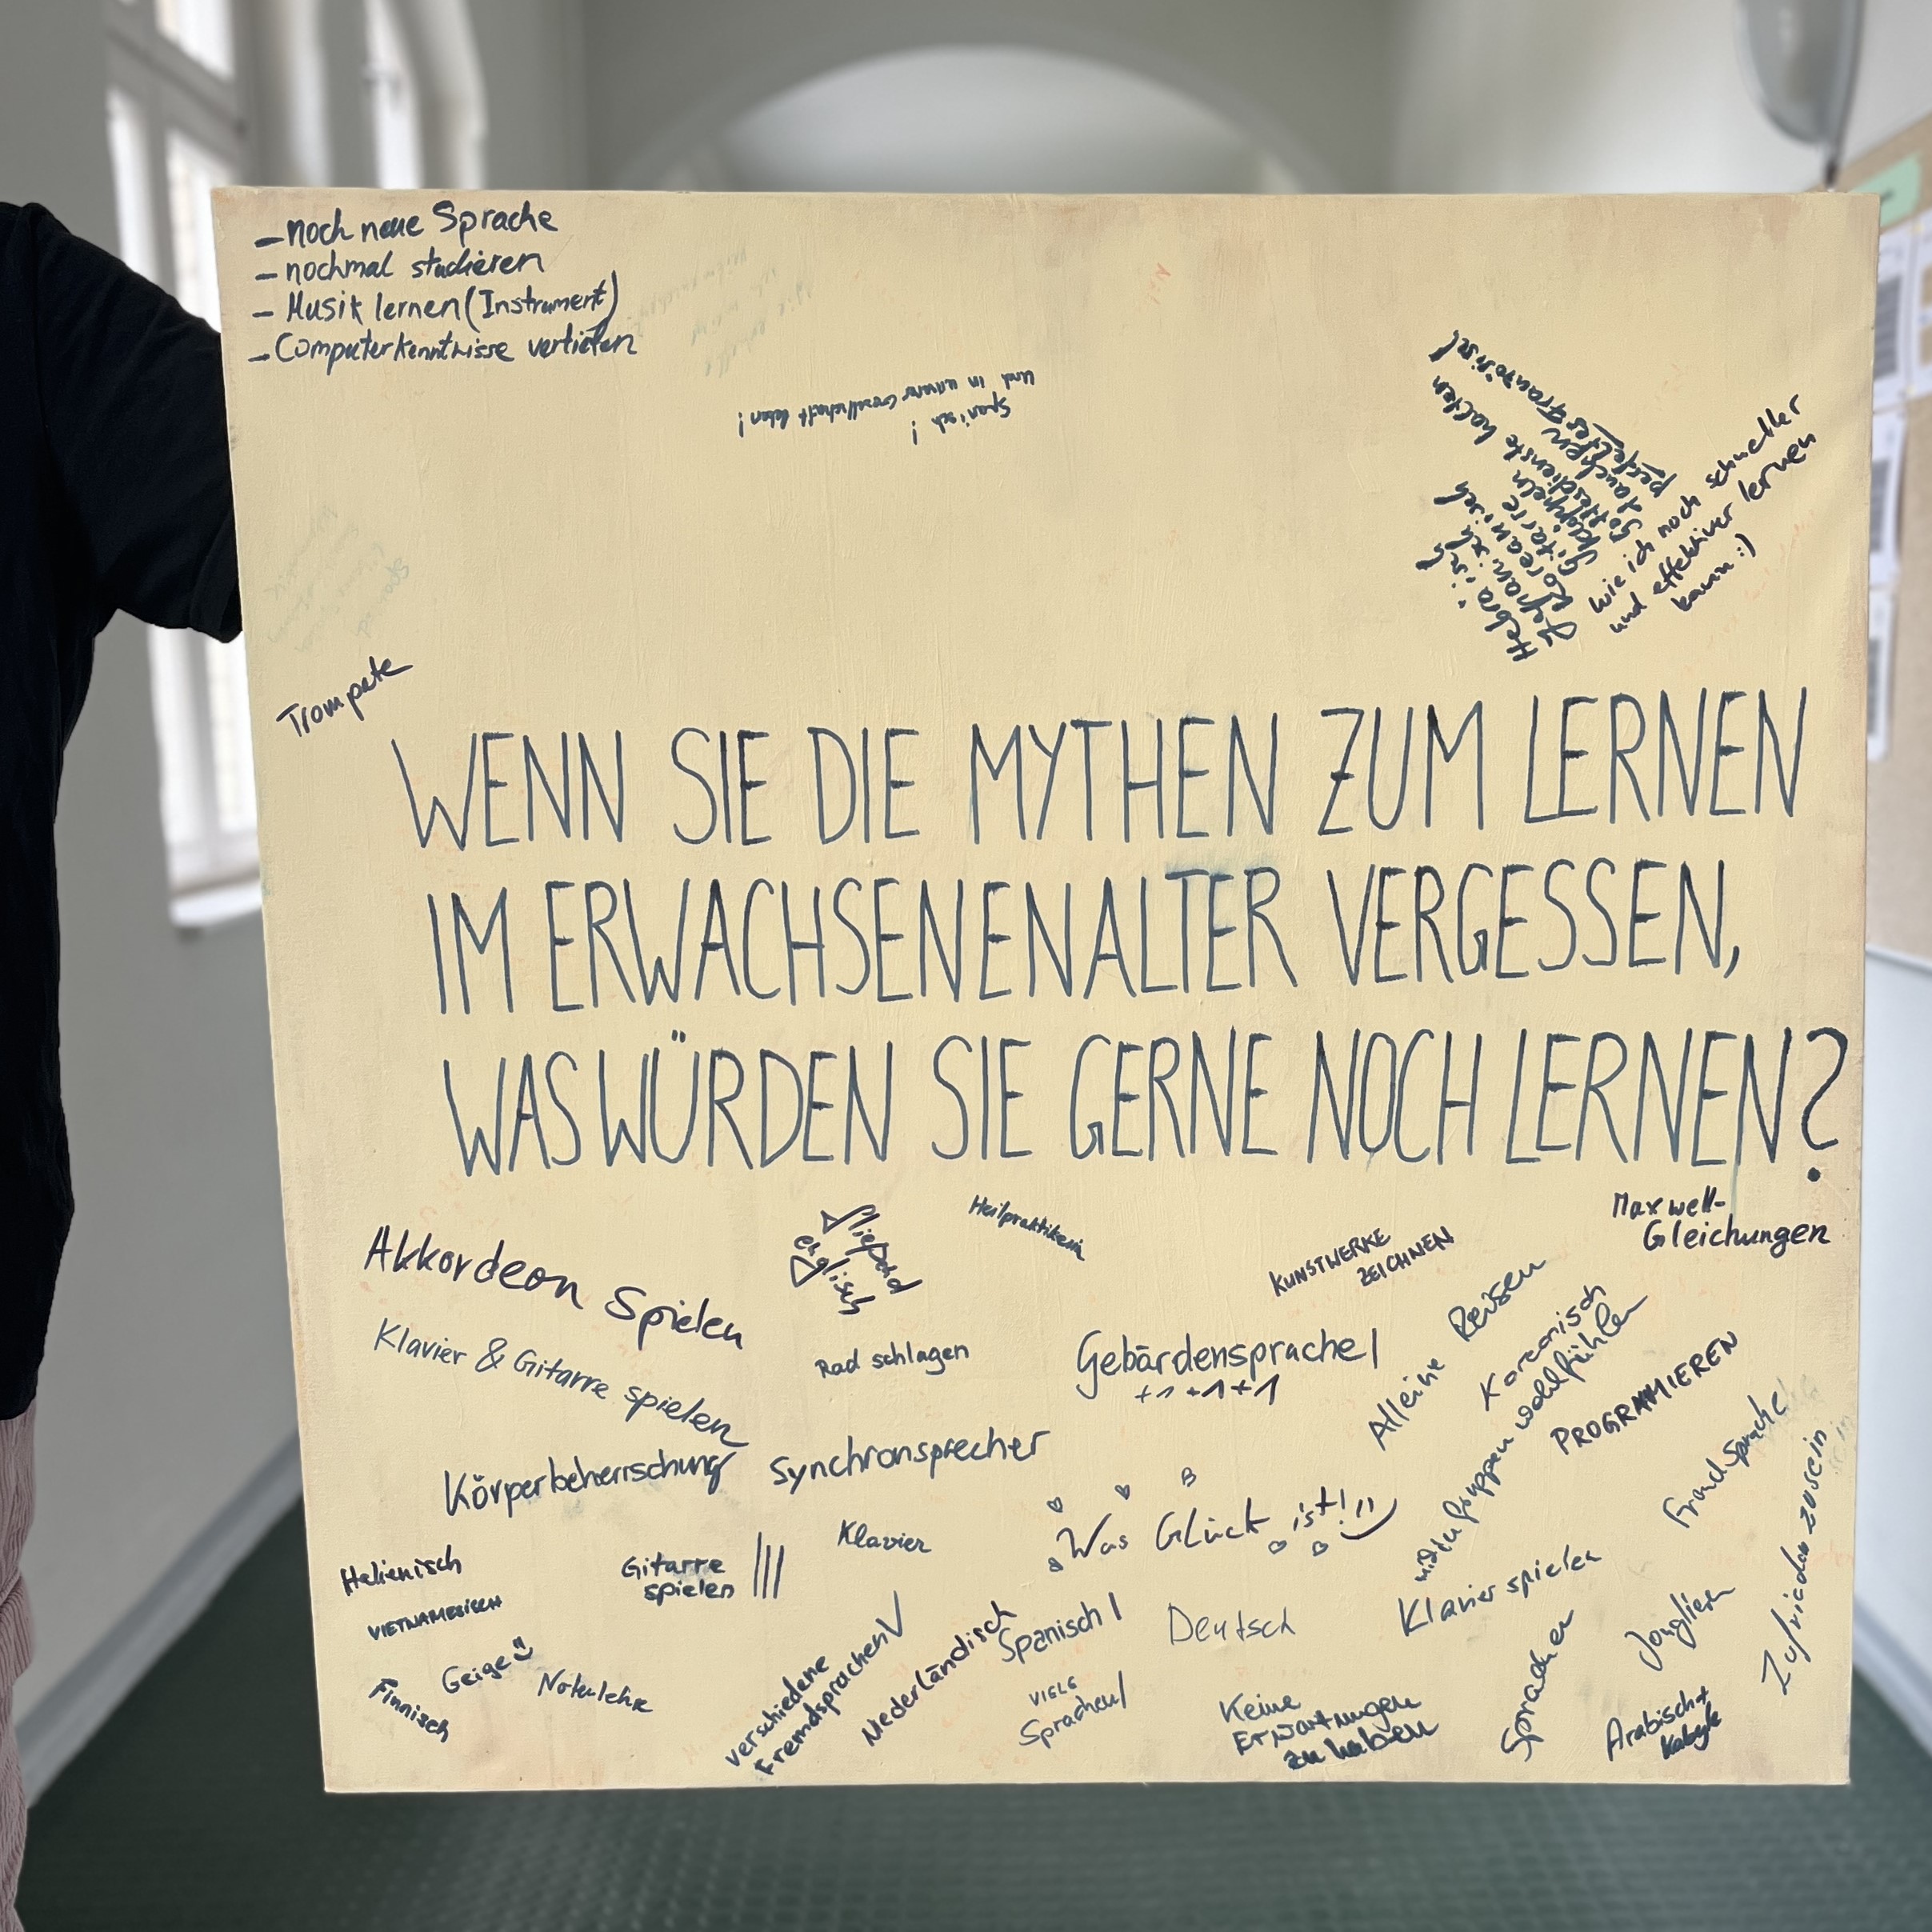 - noch neue Sprache
- nochmal studieren
- Musik lernen (Instrument)
- Computerkenntnisse vertiefen
Spanisch!
und in unserer Gesellschaft leben!
Hebräisch
Japanisch
Koreanisch
Gitarre
Klöppeln
Gottesdienste halten
tauchen
perfektes Französisch
wie ich noch schneller
und effektiver lernen
kann :)
Trompete
WENN SIE DIE MYTHEN ZUM LERNEN
IM ERWACHSENENALTER VERGESSEN,
WAS WÜRDEN SIE GERNE NOCH LERNEN?
Akkordeon spielen
fließend
englisch
Heilpraktikerin
KUNSTWERKE
ZEICHNEN
Maxwell-
Gleichungen
Klavier & Gitarre spielen
Rad schlagen
Gebärdensprache |
+1 +1 +1
Alleine Reisen
Koreanisch
mich in Gruppen wohlfühlen
PROGRAMMIEREN
Körperbeherrschung
Synchronsprecher
Fremdsprache!
Was Glück ist!!!
Italienisch
Gitarre
spielen |||
Klavier
VIETNAMESISCH
Klavier spielen
Zufrieden zu sein
Geige
Notenlehre
Finnisch
verschiedene
Fremdsprachen
Niederländisch
Spanisch |
Deutsch
VIELE
Sprachen/
Keine
Erwartungen
zu haben
Sprachen
Jonglieren
Arabisch+
Kabyle